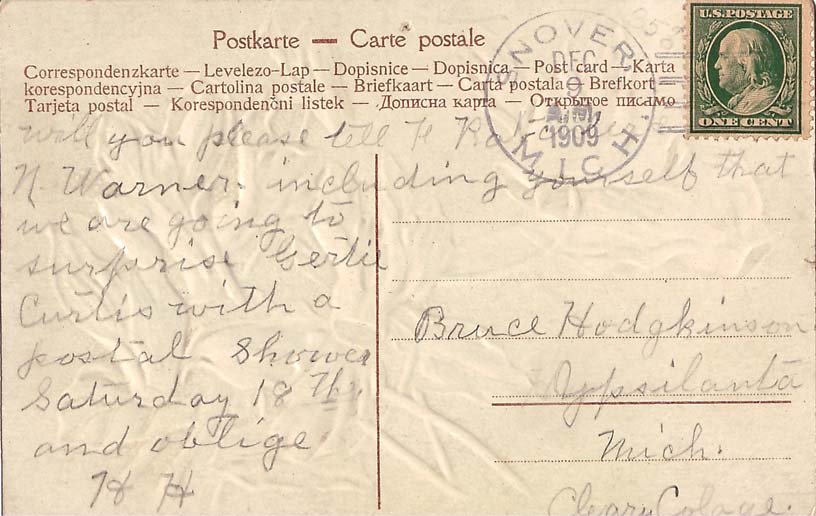 Postkarte — Carte postale
Correspondenzkarte — Levelezo-Lap — Dopisnice — Dopisnica — Post card — Karta
korespondencyjna — Cartolina postale — Briefkaart — Carta postala — Brefkort
Tarjeta postal — Korespondenčni listek — Дописна карта — Открытое письмо
SNOVER
DEC
9
1909
MICH.
U.S. POSTAGE
ONE CENT
will you please tell
N. Warner. including yourself that
we are going to
surprise Gertie
Curtis with a
postal Shower
Saturday 18 Th.
and oblige
H H
Bruce Hodgkinson
Ypsilanta
Mich.
Cleary Colage.